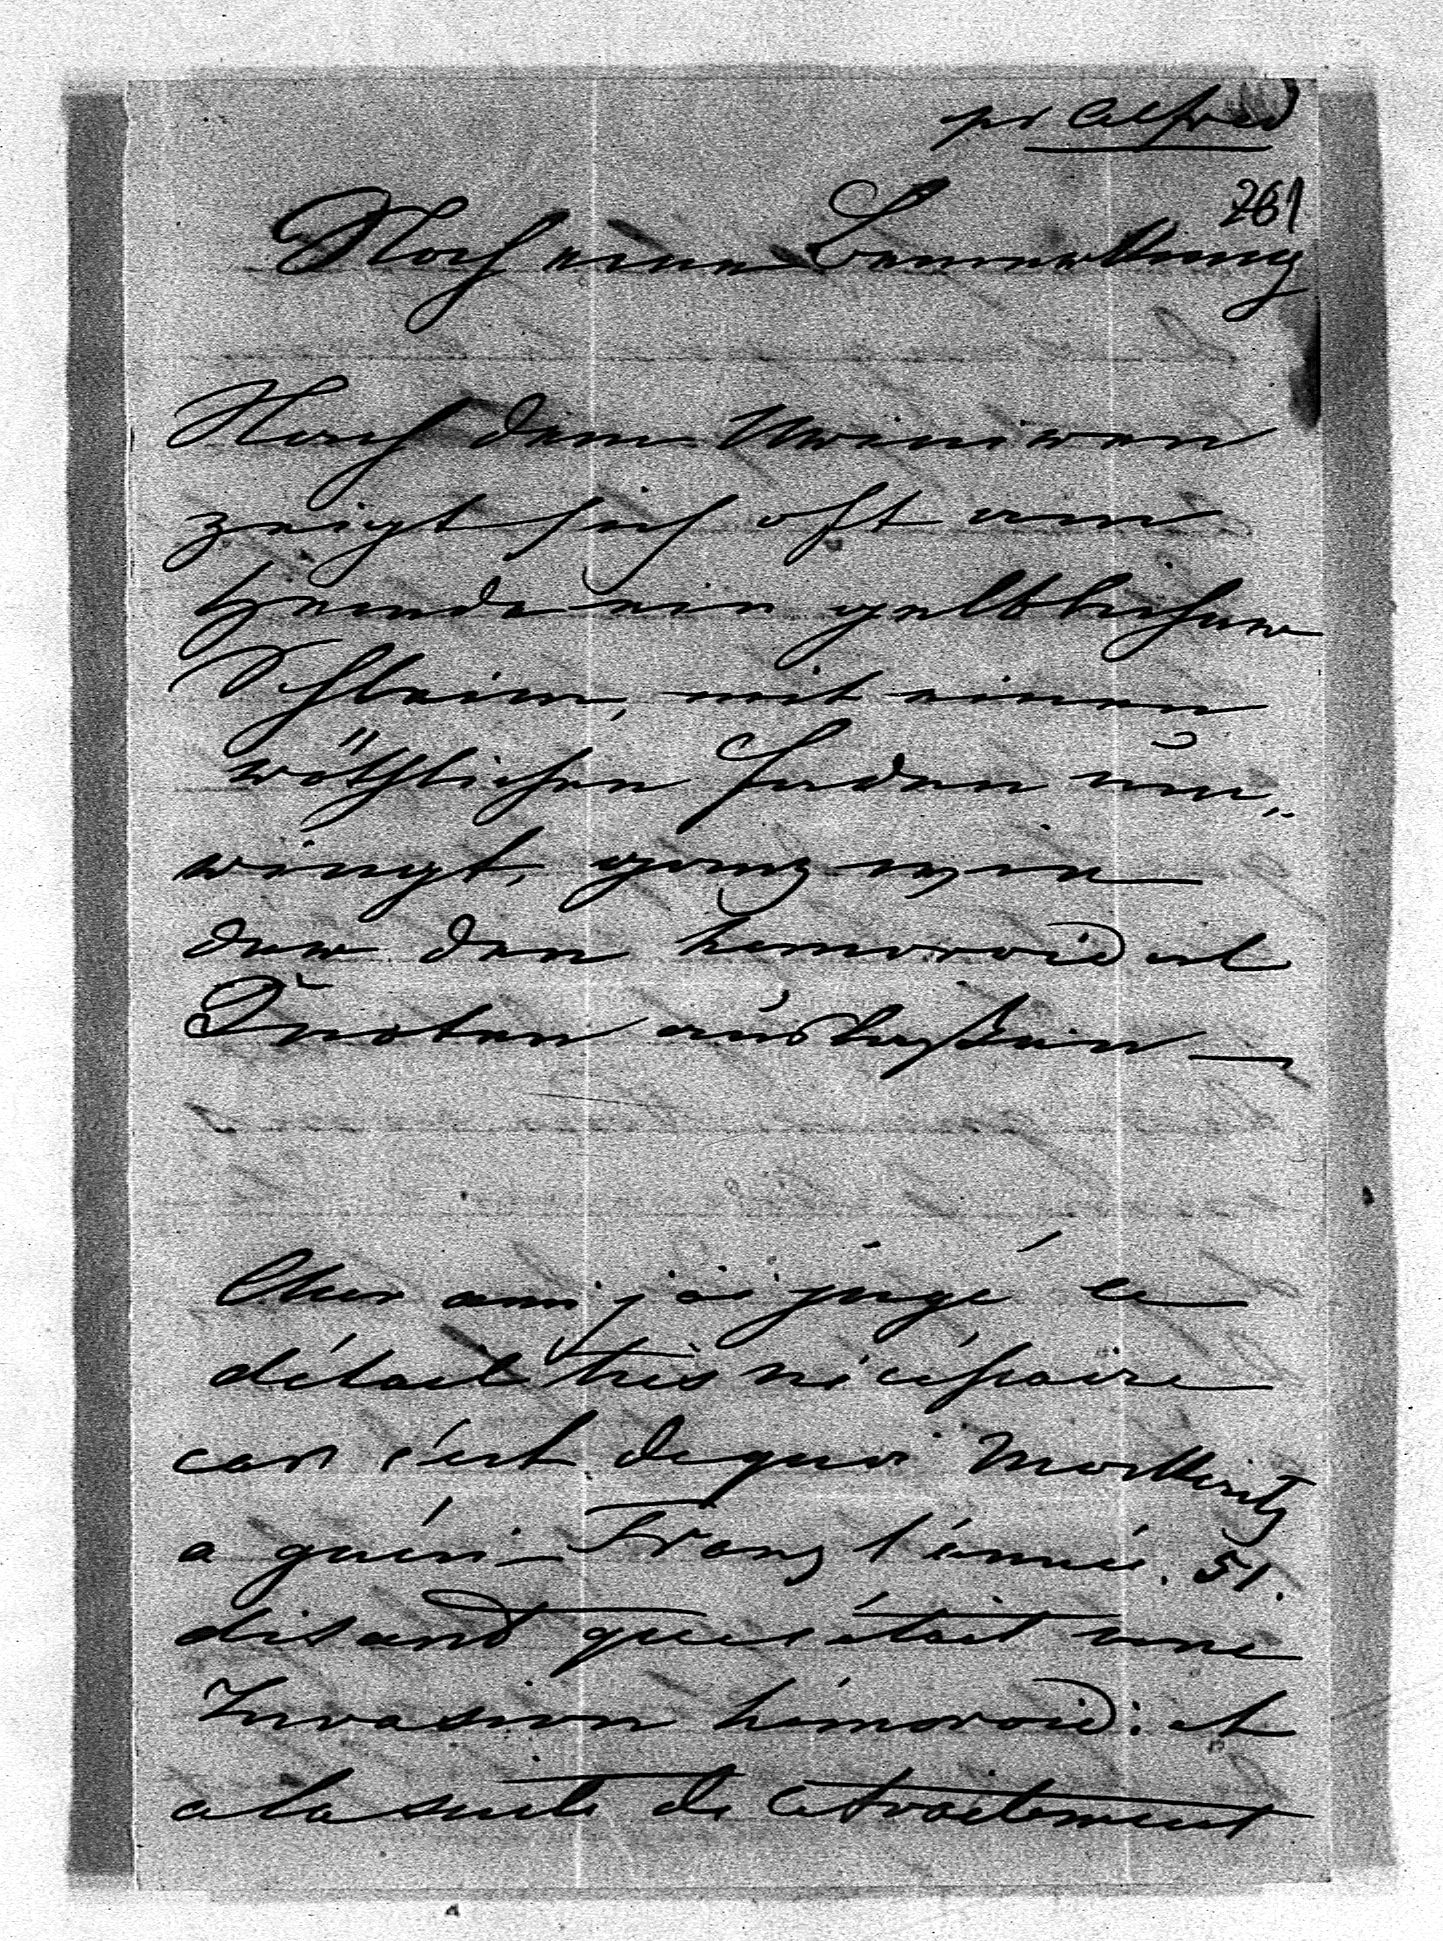 pr Alfred
261
Noch eine Bemerkung
Nach dem Uriniren
zeigt sich oft am
Ende ein gelblicher
Schleim, mit einen
röthlichen Faden um,,
ringt, ganz
der den hemoroidal
Knoten
Cher ami, j'ai jugé ce
détail très nécéssaire
car c'est de quoi
a guéri Franz l'énnée. 51.
disant que c'était une
Invasion hémoroid: et
a la suite de ce traitement